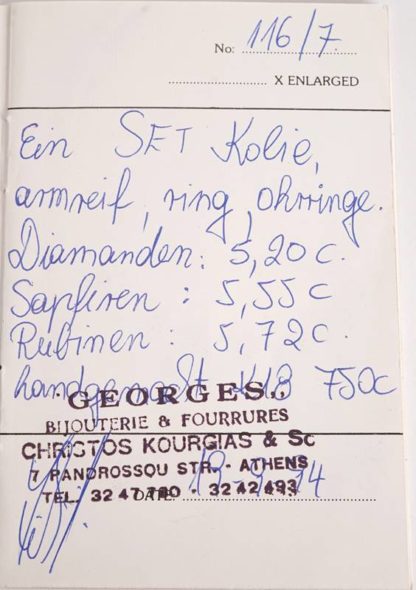 No: 116/7
X ENLARGED
Ein SET Kolie,
armreif, ring, ohrringe.
Diamanden: 5,20 c.
Sapfiren : 5,55 c
Rubinen : 5,72 c.
handgemacht K18 750c
GEORGES
BIJOUTERIE & FOURRURES
CHRISTOS KOURGIAS & Sc
7 PANDROSSOU STR. - ATHENS
TEL. 32 47 780 - 32 42 493
DATE: